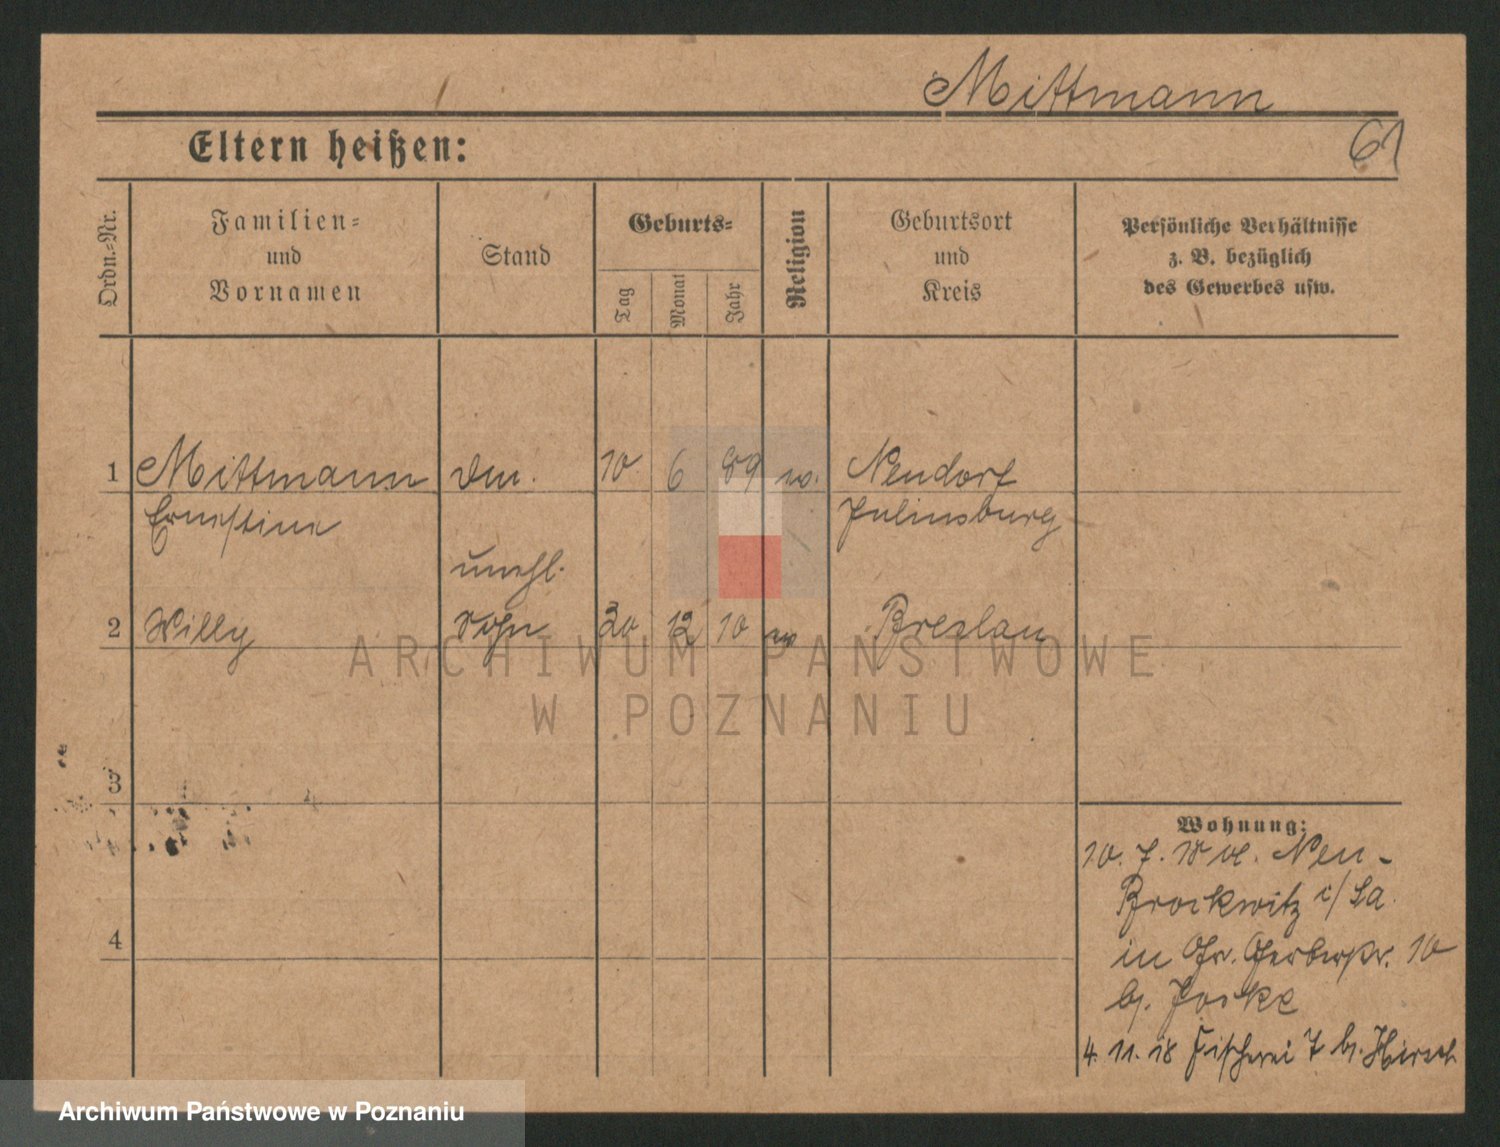 Mittmann
61
Eltern heißen:
Ordn.-Nr.
Familien-
und
Vornamen
Stand
Geburts-
Tag
Monat
Jahr
Religion
Geburtsort
und
Kreis
Persönliche Verhältnisse
z. B. bezüglich
des Gewerbes usw.
1 Mittmann 10 6 89 Neudorf
Ernestine Juliusburg
unehl.
2 Willy Sohn 30 12 10 Breslau
3
4
Wohnung:
10. 7. 18 Neu-
Brockwitz i/Sa.
in Gr. Gerberstr. 10
b. Joske
4. 11. 18 Fischerei 7 b. Hirsch
ARCHIWUM PAŃSTWOWE
W POZNANIU
Archiwum Państwowe w Poznaniu